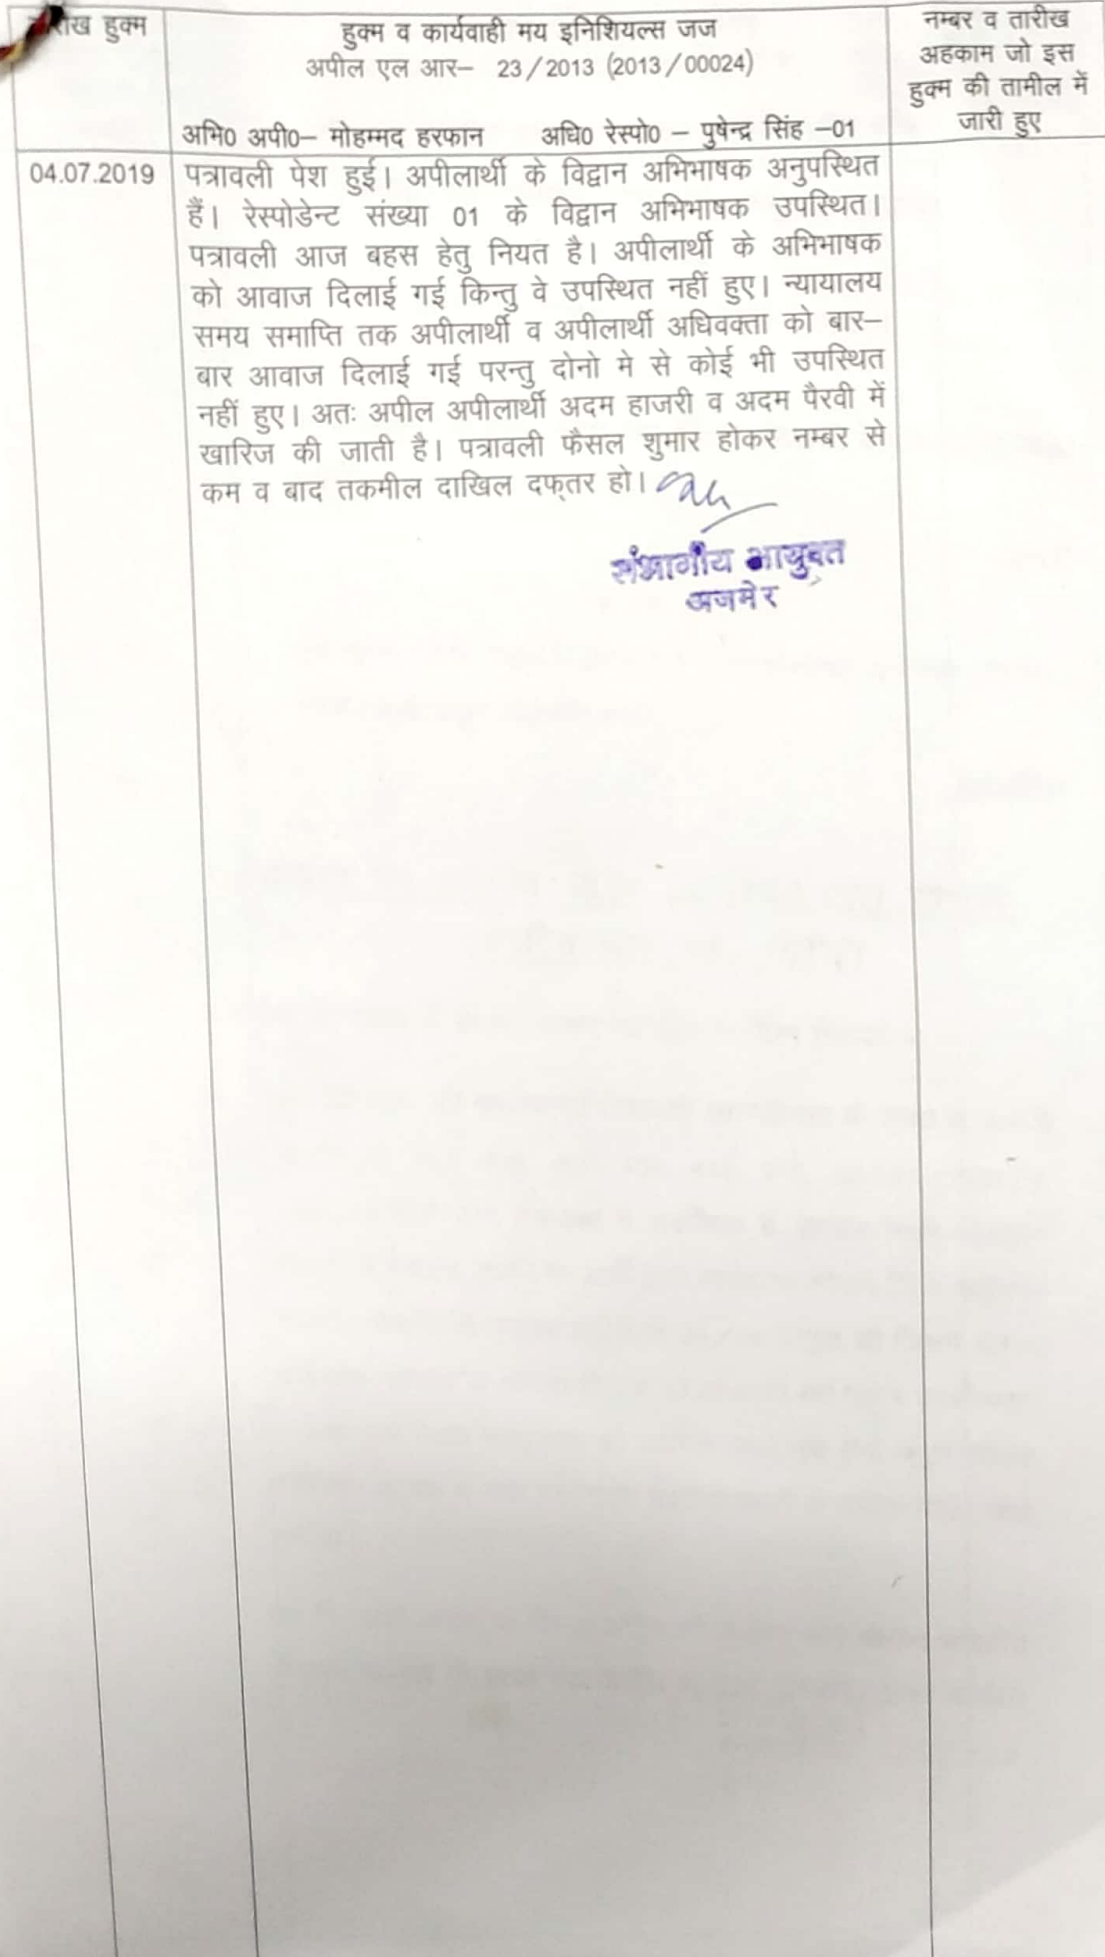 तारीख हुक्म
हुक्म व कार्यवाही मय इनिशियल्स जज
अपील एल आर– 23/2013 (2013/00024)
अभि0 अपी0– मोहम्मद हरफान अधि0 रेस्पो0 – पुषेन्द्र सिंह –01
नम्बर व तारीख
अहकाम जो इस
हुक्म की तामील में
जारी हुए
04.07.2019
पत्रावली पेश हुई। अपीलार्थी के विद्वान अभिभाषक अनुपस्थित
हैं। रेस्पोडेन्ट संख्या 01 के विद्वान अभिभाषक उपस्थित।
पत्रावली आज बहस हेतु नियत है। अपीलार्थी के अभिभाषक
को आवाज दिलाई गई किन्तु वे उपस्थित नहीं हुए। न्यायालय
समय समाप्ति तक अपीलार्थी व अपीलार्थी अधिवक्ता को बार–
बार आवाज दिलाई गई परन्तु दोनो मे से कोई भी उपस्थित
नहीं हुए। अतः अपील अपीलार्थी अदम हाजरी व अदम पैरवी में
खारिज की जाती है। पत्रावली फैसल शुमार होकर नम्बर से
कम व बाद तकमील दाखिल दफ्तर हो।
संभागीय आयुक्त
अजमेर